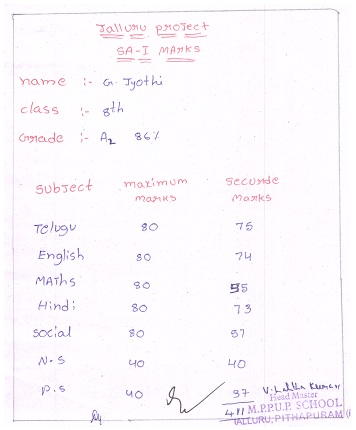 Jalluru project
SA-I Marks
name :- G. Jyothi
class :- 8th
Grade :- A2 86%
Subject maximum marks secunde Marks
Telugu 80 75
English 80 74
MAThs 80 55
Hindi 80 73
social 80 57
N.S 40 40
P.S 40 37
411
Head Master
M.P.P.U.P. SCHOOL
JALLURU, PITHAPURAM